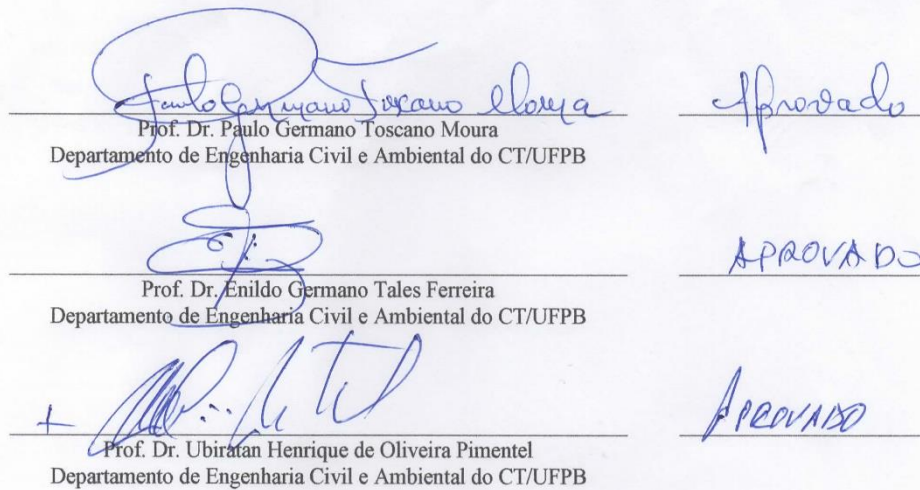 Paulo Germano Toscano Moura Aprovado
Prof. Dr. Paulo Germano Toscano Moura
Departamento de Engenharia Civil e Ambiental do CT/UFPB
APROVADO
Prof. Dr. Enildo Germano Tales Ferreira
Departamento de Engenharia Civil e Ambiental do CT/UFPB
APROVADO
Prof. Dr. Ubiratan Henrique de Oliveira Pimentel
Departamento de Engenharia Civil e Ambiental do CT/UFPB